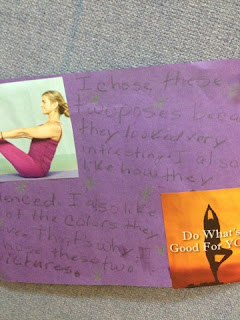 I chose these
two poses beca
they looked very
interesting. I also
like how they
enced. I also like
of the colors they
. That's why I
these two
pictures.
Do What's
Good For YO